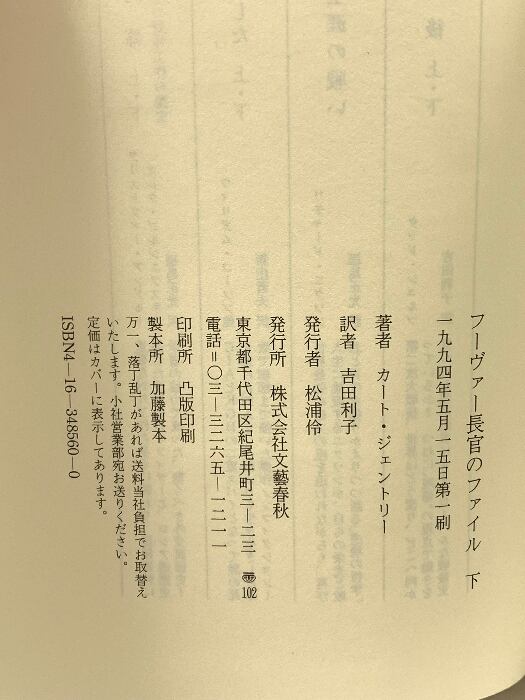 フーヴァー長官のファイル 下
一九九四年五月一五日第一刷
著者 カート・ジェントリー
訳者 吉田利子
発行者 松浦伶
発行所 株式会社文藝春秋
東京都千代田区紀尾井町三―二三 〠102
電話＝〇三―三二六五―一二一一
印刷所 凸版印刷
製本所 加藤製本
万一、落丁乱丁があれば送料当社負担でお取替え
いたします。小社営業部宛お送りください。
定価はカバーに表示してあります。
ISBN4―16―348560―0